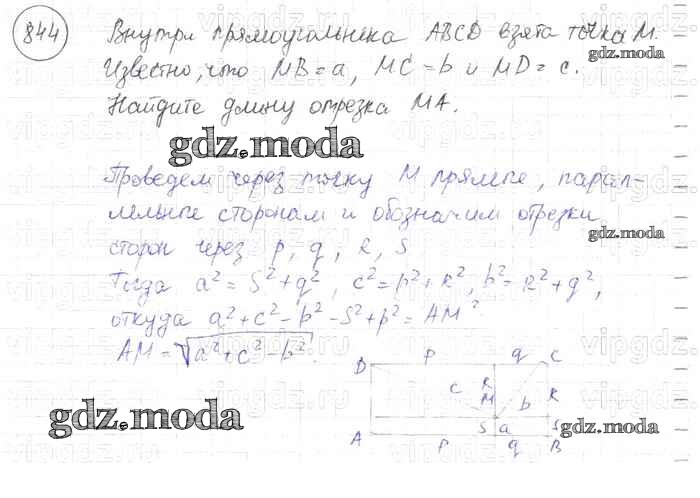 844
Внутри прямоугольника ABCD взята точка M.
Известно, что MB = a, MC = b и MD = c.
Найдите длину отрезка MA.
gdz.moda
gdz.moda
Проведем через точку M прямые, парал-
лельные сторонам и обозначим отрезки
gdz.moda
сторон через p, q, R, S
Тогда a² = S² + q², c² = p² + R², b² = R² + q²,
откуда a² + c² - b² = S² + p² = AM²
AM = √a² + c² - b².
D p q C
c R M b R
gdz.moda
S a S
gdz.moda
A p q B